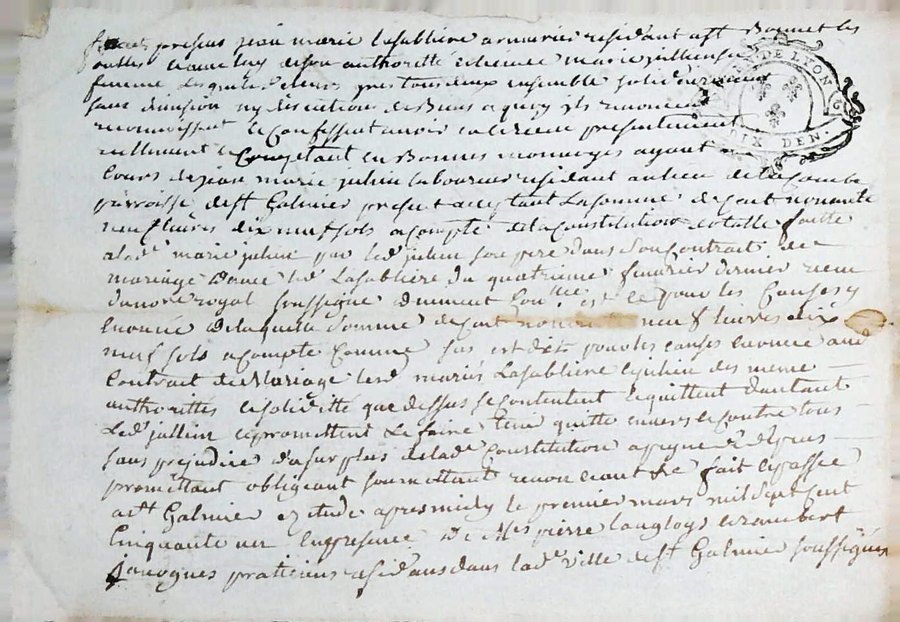 presens jean marie Lasabliere armurier residant a st Bonnet les
oulles avec luy de son authorité licence marie jullien sa
femme lesquels de leurs gres tous deux ensemble solidairement
sans division ny discution de Biens a quoy ils renoncent
reconnoissent et Confessent avoir eu et receu presentement
reellement et Comptant en Bonnes monnoyes ayant
Cours de jean marie julien laboureur residant au lieu de la Combe
parroisse de st Galmier present acceptant La somme de Cent nonante
neuf livres dix neuf sols a compte de la Constitution dotalle faitte
a lad. marie julien par led. julien son pere dans son Contrat de
mariage avec led. Lasabliere du quatrieme fevrier dernier receu
du nore royal soussigné dument Con.llée et ce pour les Causes y
Enoncée de laquelle somme de Cent neuf livres dix
neuf sols a compte Comme sus est dit pour les causes enoncée aud.
Contrat de Mariage lesd. mariés Lasabliere et julien des meme
authorittés et soliditté que dessus se contentent et quittent d'autant
Led. jullien et promettent Le faire tenir quitte envers et contre tous
sans prejudice du surplus de lad. Constitution a peyne de depens
promettant obligeant soumettant renonceant &c fait et passé
a st Galmier etude apres midy le premier mars mil sept Cent
Cinquante un En presence de Mes pierre Langloys et rambert
javognes praticiens residans dans lad. ville de st Galmier soussignés
DE LYON
DIX DEN.